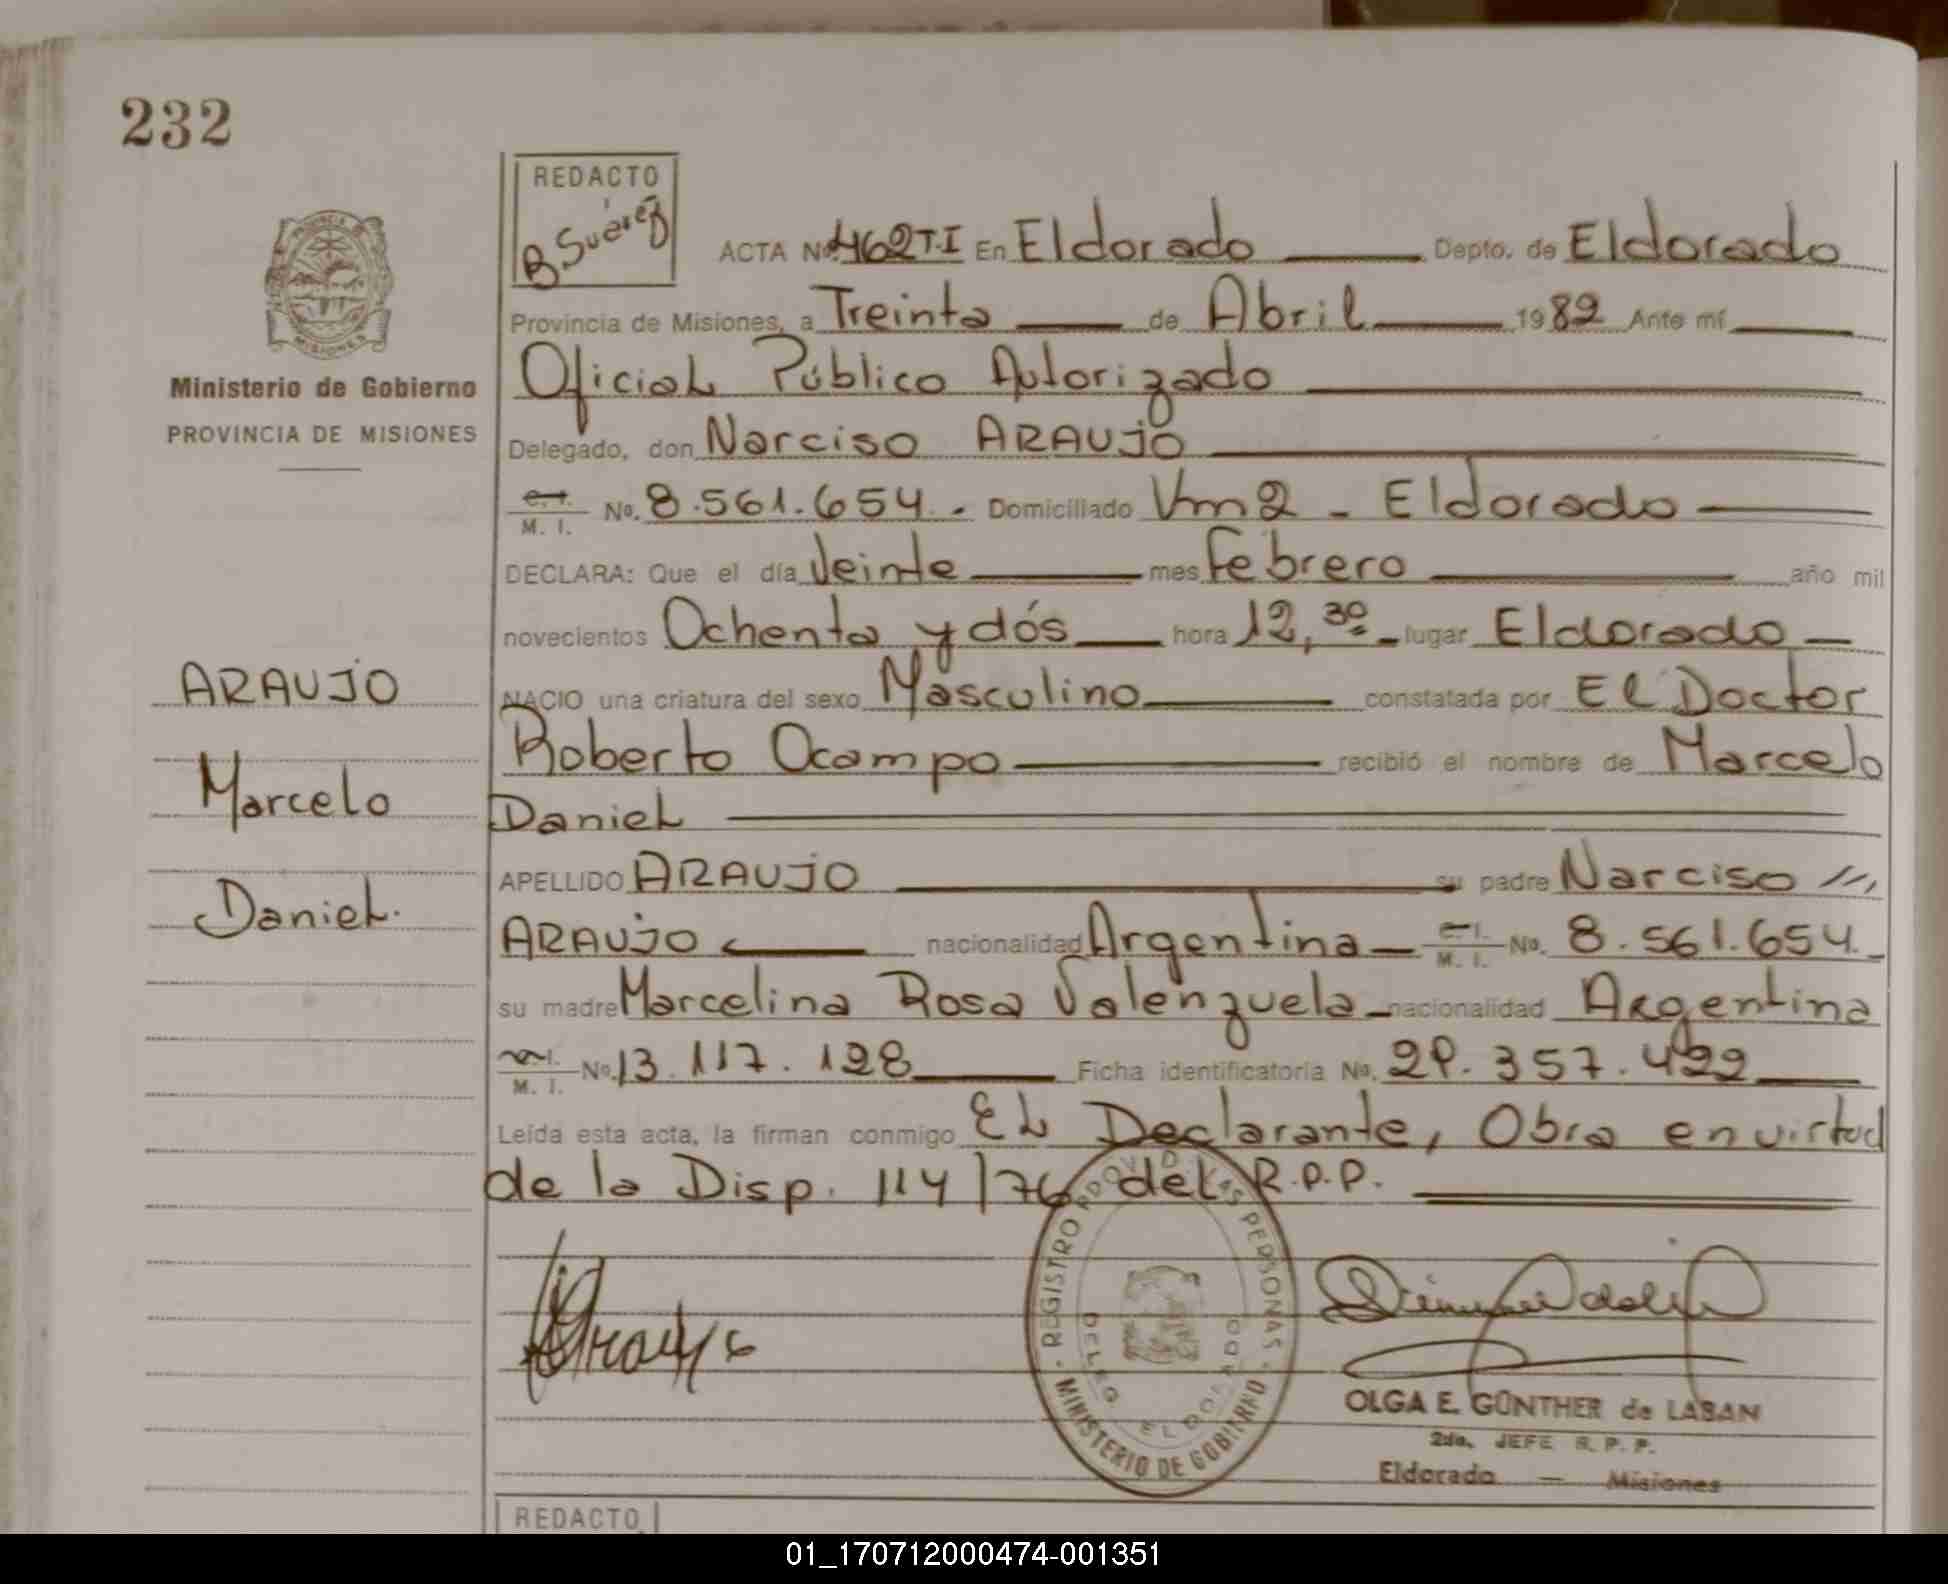 232
REDACTO
B Suárez
ACTA No. 462 T.I En Eldorado Depto. de Eldorado
Provincia de Misiones, a Treinta de Abril 1982 Ante mí
Oficial Público Autorizado
Ministerio de Gobierno
PROVINCIA DE MISIONES
Delegado, don Narciso ARAUJO
M. I. No. 8.561.654. Domiciliado Km2 - Eldorado
DECLARA: Que el día Veinte mes Febrero año mil
novecientos Ochenta y dós hora 12,30 lugar Eldorado
NACIO una criatura del sexo Masculino constatada por El Doctor
Roberto Ocampo recibió el nombre de Marcelo
Daniel
ARAUJO
Marcelo
Daniel.
APELLIDO ARAUJO su padre Narciso ///,
ARAUJO nacionalidad Argentina c. i. M. I. No. 8.561.654.
su madre Marcelina Rosa Valenzuela nacionalidad Argentina
M. I. No. 13.117.128 Ficha identificatoria No. 29.357.422
Leída esta acta, la firman conmigo El Declarante, Obra en virtud
de la Disp. 114/76 del R.P.P.
REGISTRO PROV. D. LAS PERSONAS
MINISTERIO DE GOBIERNO
DELEG. ELDORADO
OLGA E. GÜNTHER de LABAN
2da. JEFE R. P. P.
Eldorado — Misiones
REDACTO
01_170712000474-001351